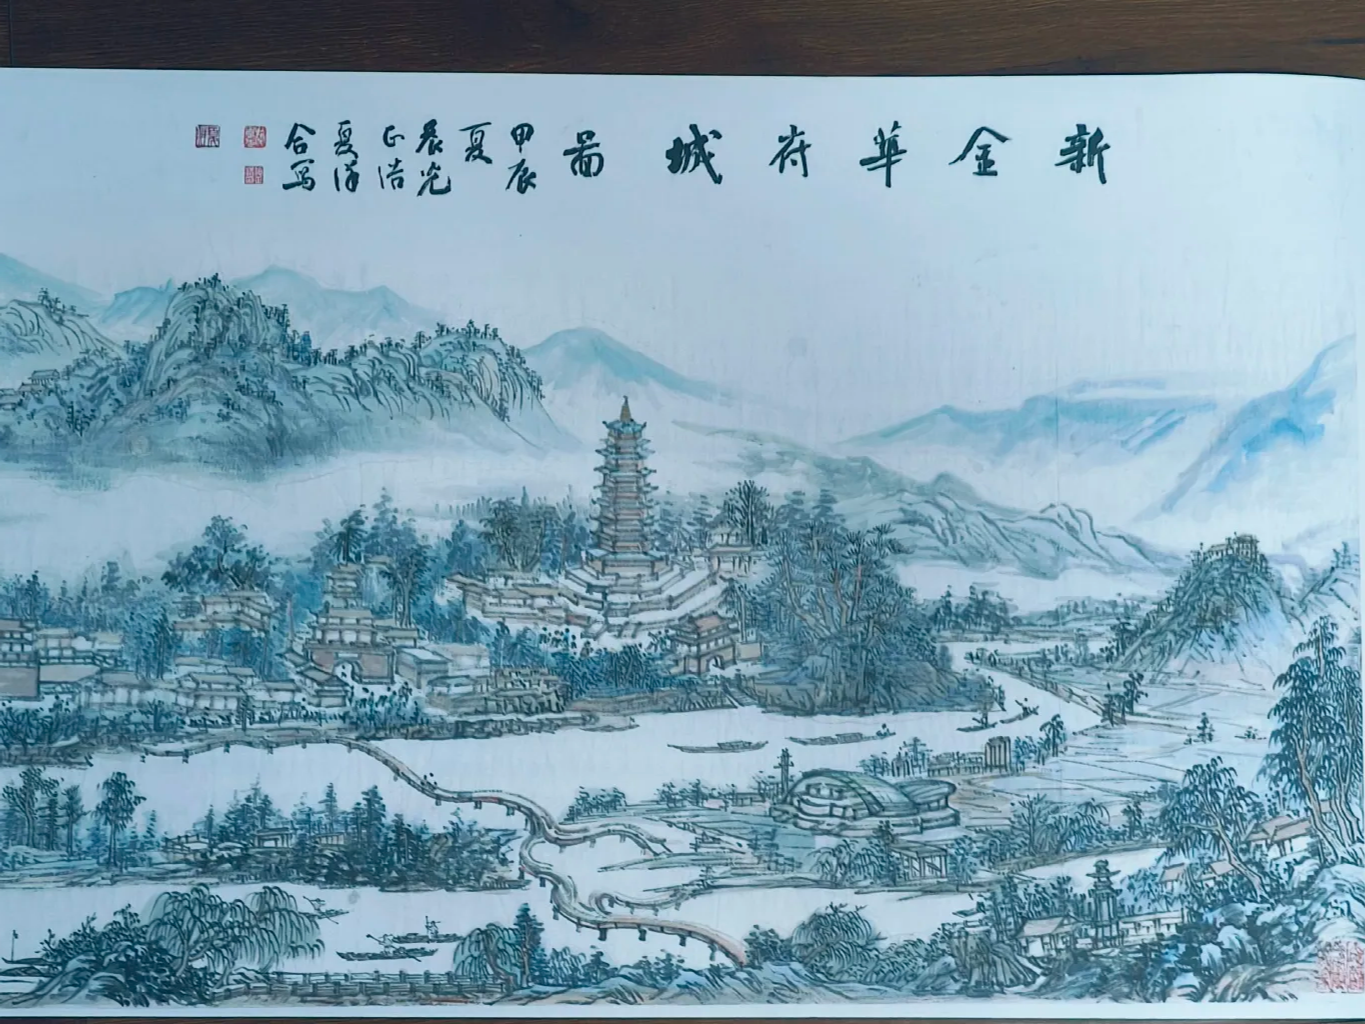 新金華府城圖
甲辰
夏
晨光
正浩
夏洋
合寫